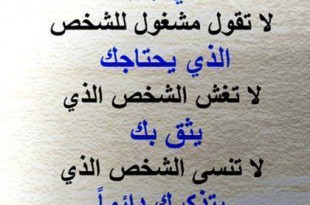 لا تقول مشغول للشخص
الذي يحتاجك
لا تغش الشخص الذي
يثق بك
لا تنسى الشخص الذي
يتذكرك دائماً